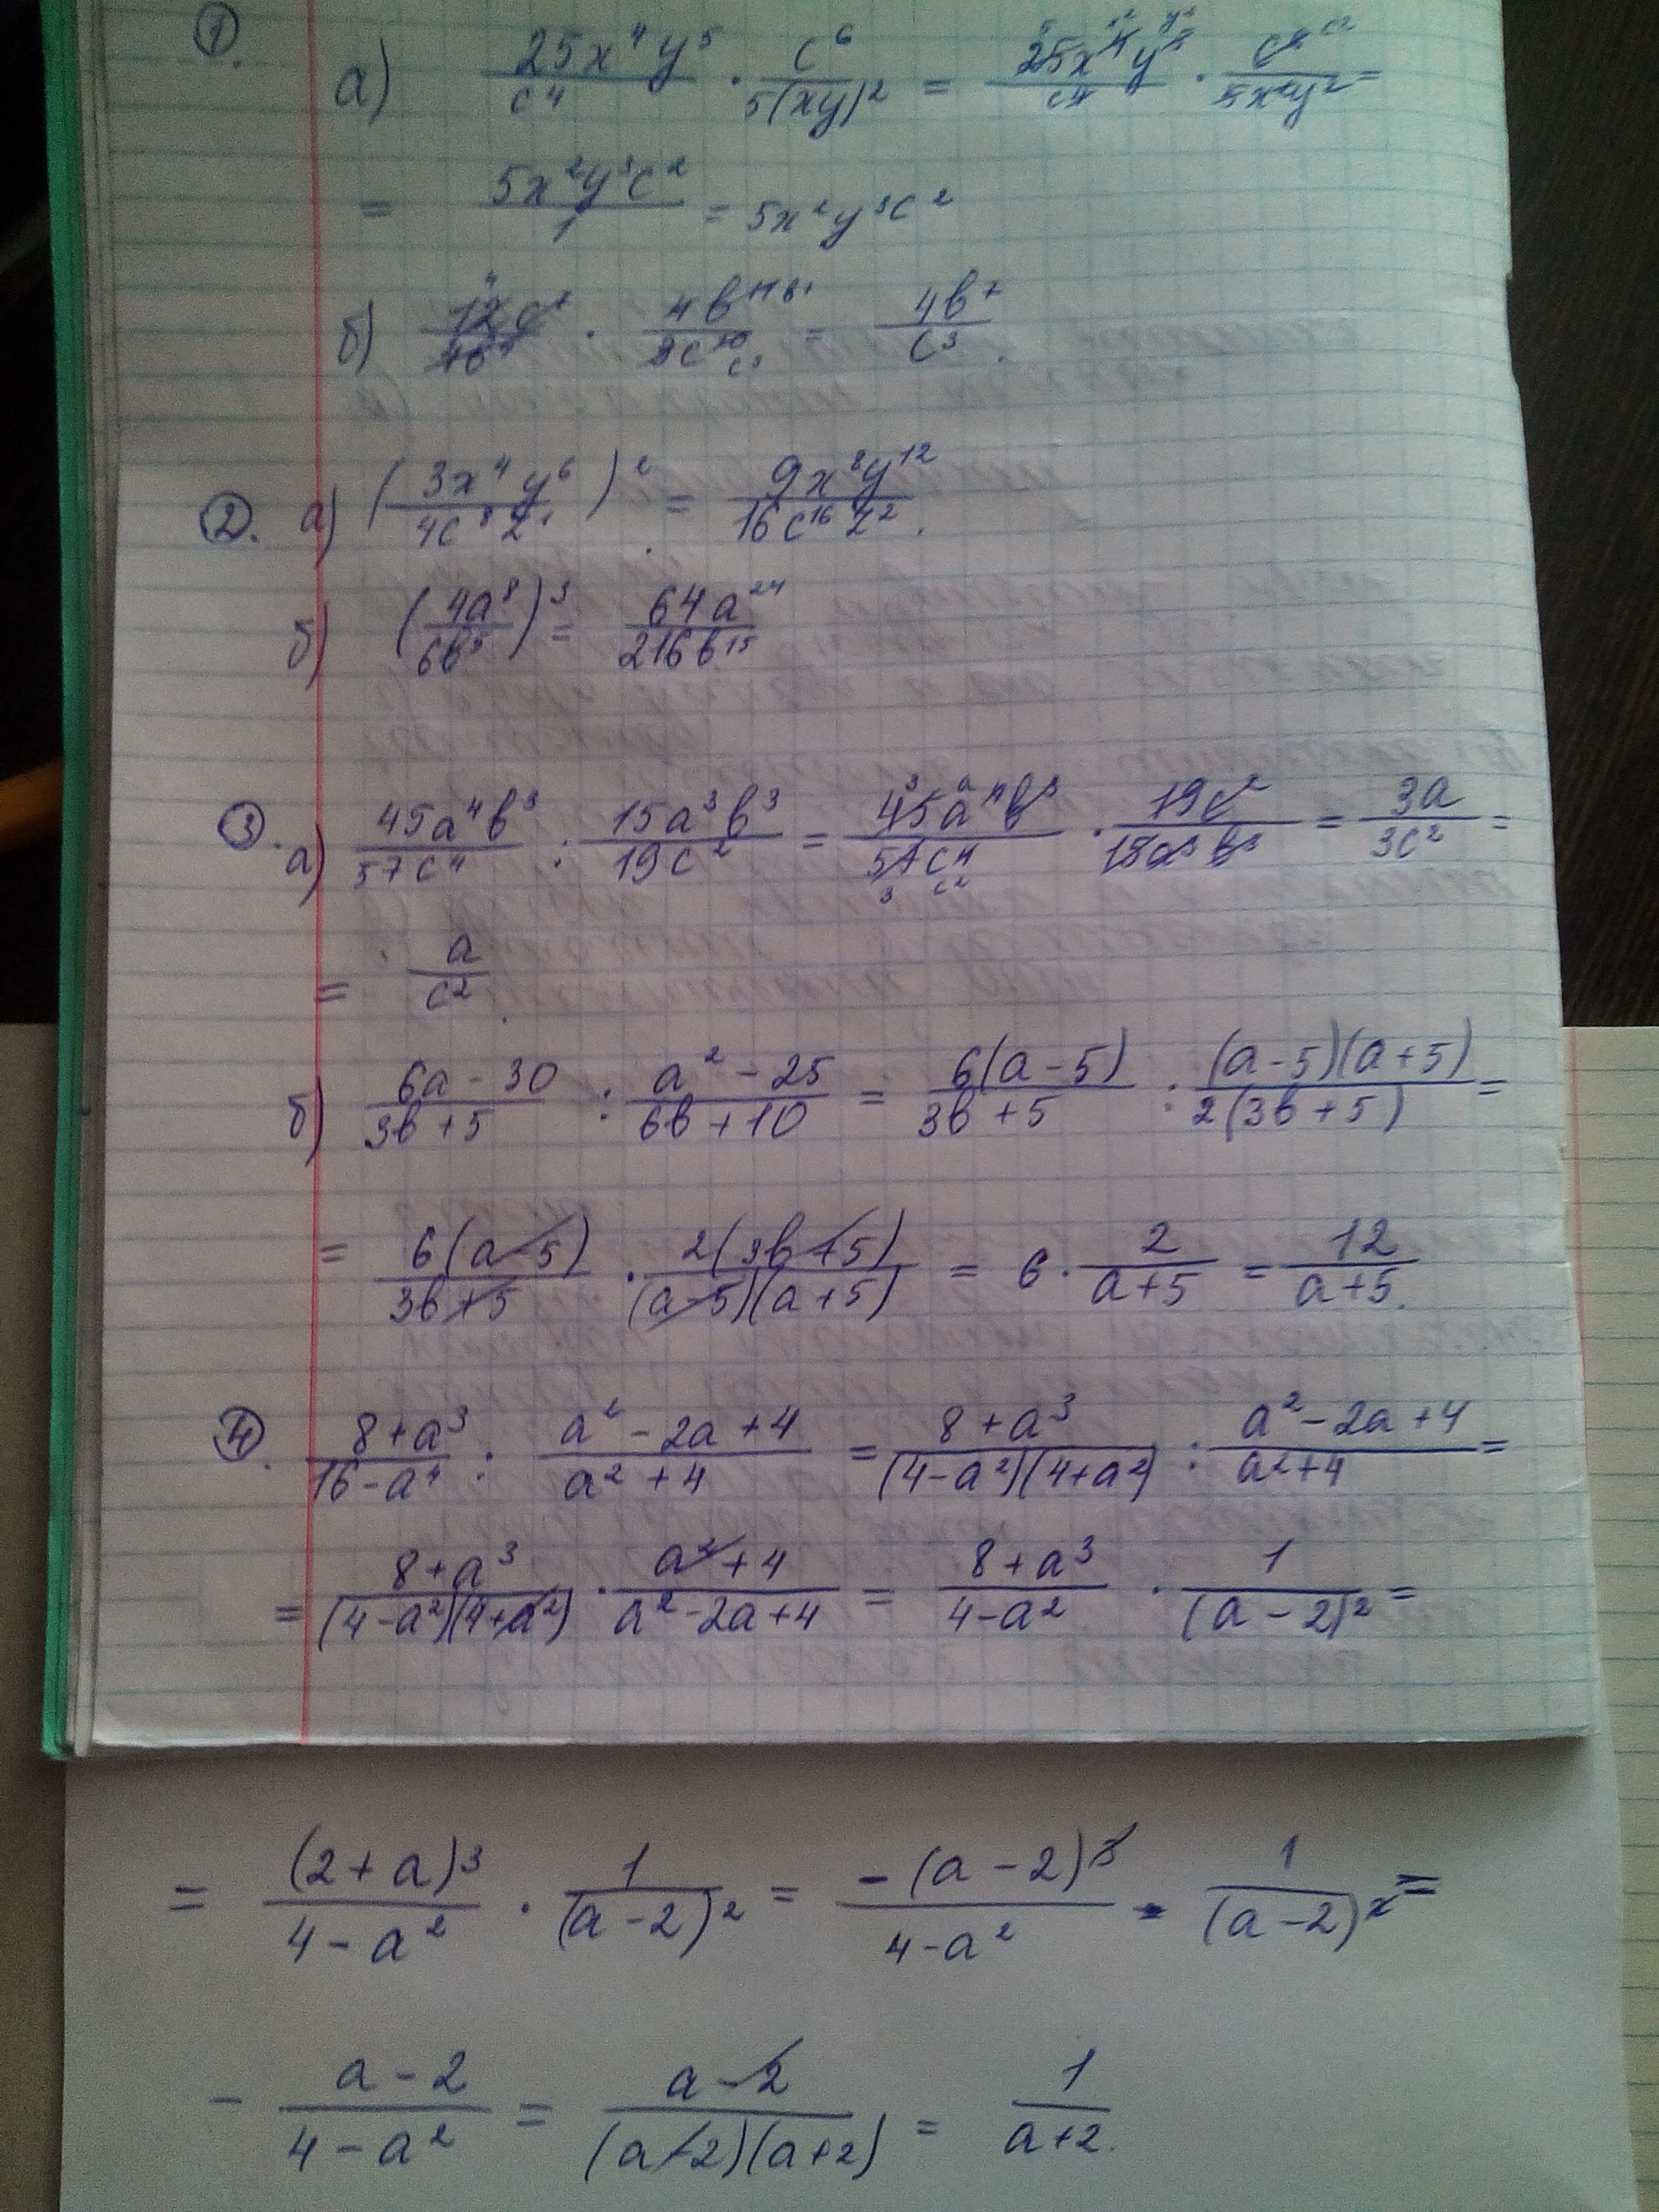 1. а) 25x⁴y⁵/c⁴ · c⁶/5(xy)² = 25x⁴y⁵/c⁴ · c⁶/5x²y² =
= 5x²y³c²/1 = 5x²y³c²
б) · = 4b⁷/c³.
2. а) (3x⁴y⁶/4c⁸z¹)² = 9x⁸y¹²/16c¹⁶z².
б) (4a⁸/6b⁵)³ = 64a²⁴/216b¹⁵
3. а) 45a⁴b³/57c⁴ : 15a³b³/19c² = 45a⁴b³/57c⁴ · 19c²/15a³b³ = 3a/3c² =
= a/c².
б) 6a-30/3b+5 : a²-25/6b+10 = 6(a-5)/3b+5 : (a-5)(a+5)/2(3b+5) =
= 6(a-5)/3b+5 · 2(3b+5)/(a-5)(a+5) = 6 · 2/a+5 = 12/a+5.
4. 8+a³/16-a⁴ : a²-2a+4/a²+4 = 8+a³/(4-a²)(4+a²) : a²-2a+4/a²+4 =
= 8+a³/(4-a²)(4+a²) · a²+4/a²-2a+4 = 8+a³/4-a² · 1/(a-2)² =
= (2+a)³/4-a² · 1/(a-2)² = -(a-2)³/4-a² · 1/(a-2)² =
- a-2/4-a² = a-2/(a-2)(a+2) = 1/a+2.